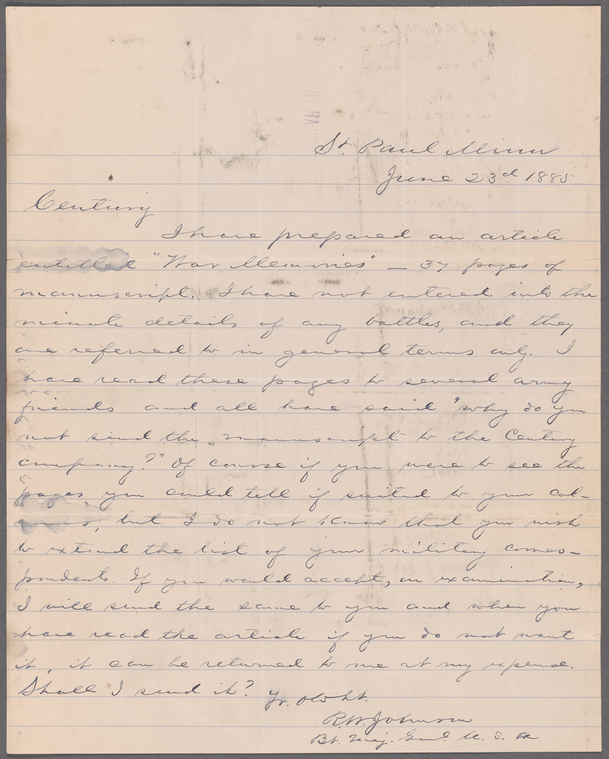 St. Paul Minn
June 23d 1885.
Century
I have prepared an article
entitled "War Memories" — 37 pages of
manuscript. I have not entered into the
minute details of any battles, and they
are referred to in general terms only. I
have read these pages to several army
friends and all have said "why do you
not send the manuscript to the Century
company?" Of course if you were to see the
pages, you could tell if suited to your col-
umns, but I do not know that you wish
to extend the list of your military corres-
pondents. If you would accept, on examination,
I will send the same to you and when you
have read the article if you do not want
it, it can be returned to me at my expense.
Shall I send it? Yr. obt. st.
R. W. Johnson
Bt. Maj. Genl. U. S. A